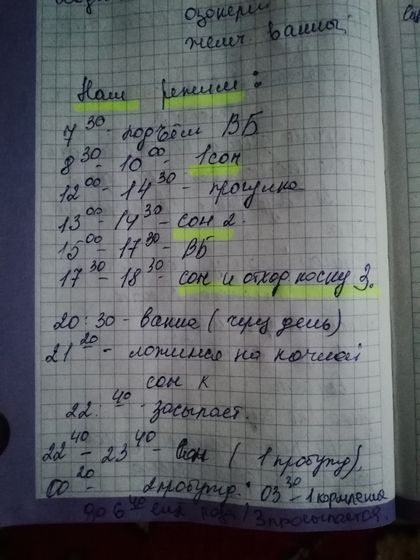 озокерит
жемч. ванны
Наш режим:
7 30 - подъём ВБ
8 30 - 10 00 - 1 сон
12 00 - 14 30 - прогулка
13 00 - 14 30 - сон 2.
15 00 - 17 30 - ВБ
17 30 - 18 30 - сон и отход ко сну 3.
20:30 - ванна (через день)
21 20 - ложимся на ночной
сон к
22:40 - засыпает.
22 40 - 23 40 - Сон (1 пробужд),
00 20 - 2 пробужд. 03 30 - 1 кормление
До 6 40 ещё раза / 3 просыпается.